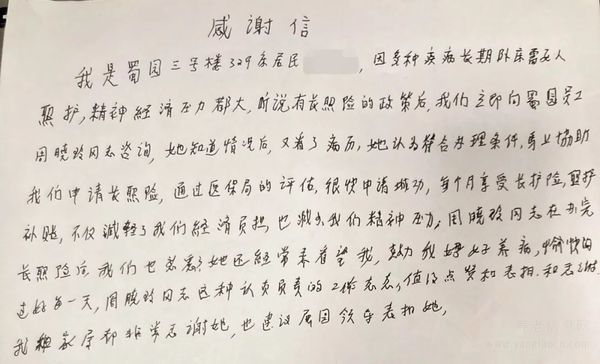 感谢信
我是蜀园三号楼329床居民 ，因多种疾病长期卧床需要人
照护，精神经济压力都大，听说有长照险的政策后，我们立即向蜀园员工
周晓玲同志咨询，她知道情况后，又看了病历，她认为符合办理条件，马上协助
我们申请长照险，通过医保局的评估，很快申请成功，每个月享受长护险照护
补贴，不仅减轻了我们经济负担，也减少我们精神压力，周晓玲同志在办完
长照险后，我们也 她还经常来看望我，鼓励我好好养病，愉快的
过好每一天，周晓玲同志这种认真负责的工作态度，值得点赞和表扬和感谢
我 家属都非常感谢她，也建议 园领导表扬她，